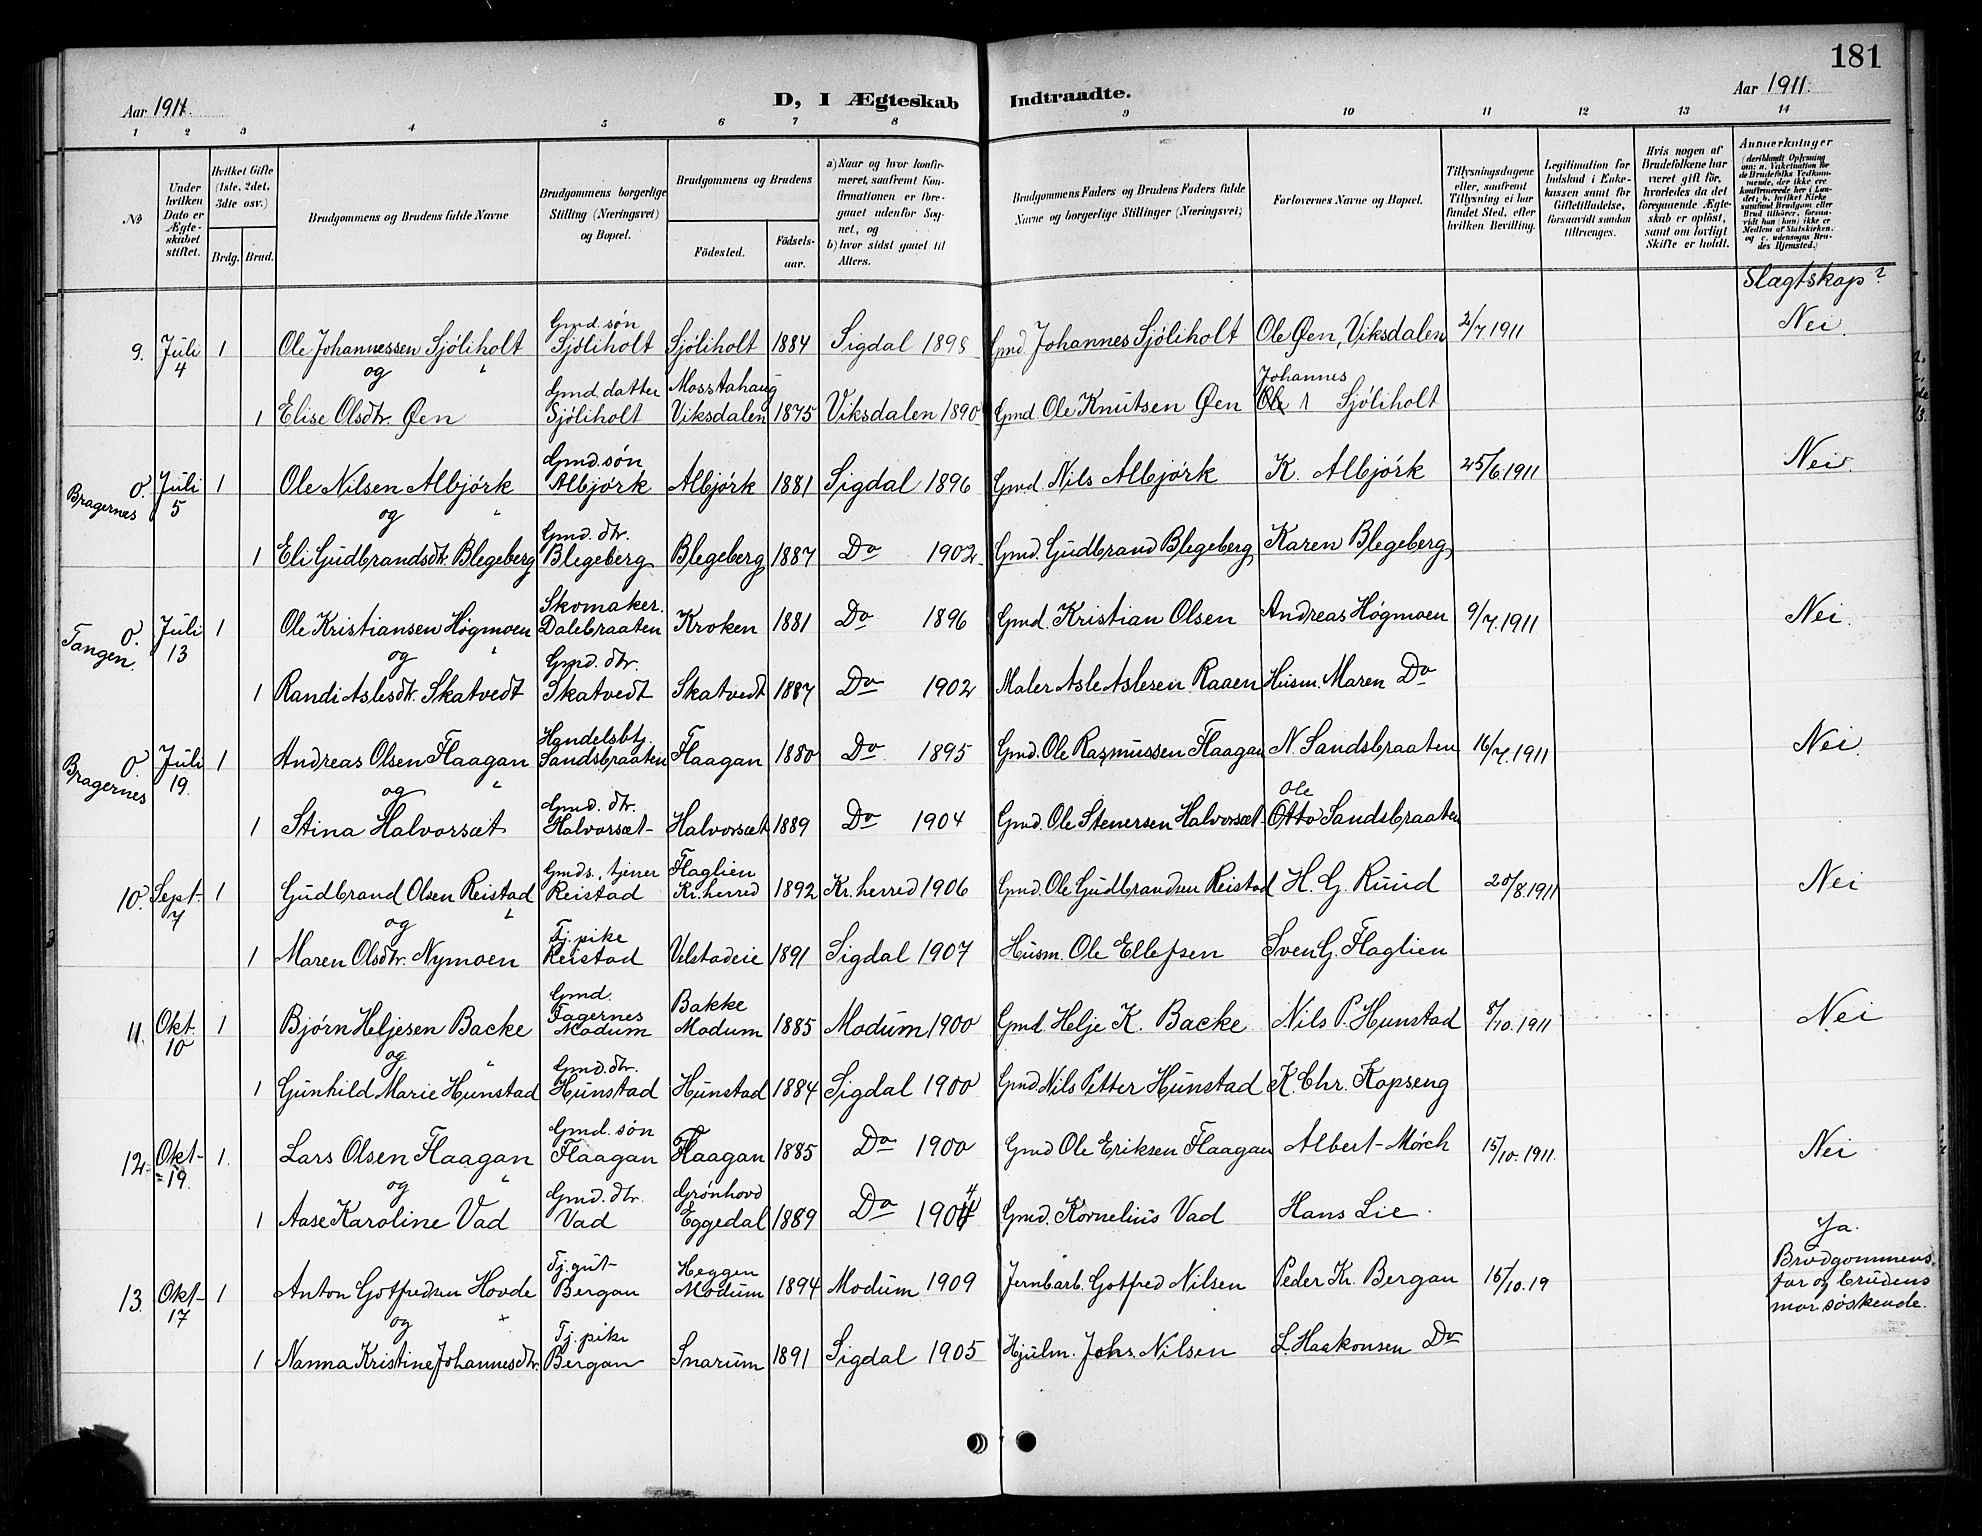 181
Aar 1911.
D, I Ægteskab Indtraadte.
Aar 1911.
1 2 3 4 5 6 7 8 9 10 11 12 13 14
No
Under hvilken Dato er Ægteskabet stiftet.
Hvilket Gifte (1ste, 2det, 3dte osv.)
Brdg. Brud.
Brudgommens og Brudens fulde Navne
Brudgommens borgerlige Stilling (Næringsvei) og Bopæl.
Brudgommens og Brudens
Födested.
Födsels-aar.
a) Naar og hvor konfirmeret, saafremt Konfirmationen er foregaaet udenfor Sognet, og
b) hvor sidst gaaet til Alters.
Brudgommens Faders og Brudens Faders fulde Navne og borgerlige Stillinger (Næringsvei)
Forlovernes Navne og Bopæl.
Tillysningsdagene eller, saafremt Tillysning ei har fundet Sted, efter hvilken Bevilling.
Legitimation for Indskud i Enkekassen samt for Giftetilladelse, forsaavidt saadan tiltrænges.
Hvis nogen af Brudefolkene har været gift för, hvorledes da det foregaaende Ægteskab er oplöst, samt om lovligt Skifte er holdt.
Anmærkninger
(deriblandt Oplysning om: a. Vakcination for de Brudefolks Vedkommende, der ikke ere konfirmerede her i Landet; b. hvilket Kirkesamfund Brudgom eller Brud tilhörer, forsavidt han (hun) ikke er Medlem af Statskirken, og c. udensogns Brudes Hjemsted.)
Slagtskap?
Gmd. søn
9. Juli 4 1 Ole Johannessen Sjøliholt Sjøliholt Sjøliholt 1884 Sigdal 1898 Gmd. Johannes Sjøliholt Ole Øen, Viksdalen 2/7.1911 Nei.
og
Gmd. datter Mosstahaug Johannes
1 Elise Olsdtr. Øen Sjøliholt Viksdalen 1875 Viksdalen 1890 Gmd. Ole Knutsen Øen Ole Sjøliholt
Gmd. søn
Bragernes O. Juli 5 1 Ole Nilsen Albjørk Albjørk Albjørk 1881 Sigdal 1896 Gmd. Nils Albjørk K. Albjørk 25/6.1911 Nei.
og
Gmd. dtr.
1 Eli Gudbrandsdtr. Blegeberg Blegeberg Blegeberg 1887 Do 1902 Gmd. Gudbrand Blegeberg Karen Blegeberg
Skomaker.
Tangen. O. Juli 13 1 Ole Kristiansen Høgmoen Dalebraaten Kroken 1881 Do 1896 Gmd. Kristian Olsen Andreas Høgmoen 9/7.1911 Nei.
og
Gmd. dtr.
1 Randi Aslesdtr. Skatvedt Skatvedt Skatvedt 1887 Do 1902 Maler Asle Aslesen Raaen Husm. Maren Do
Handelsbtj.
Bragernes O. Juli 19. 1 Andreas Olsen Flaagan Sandsbraaten Flaagan 1880 Do 1895 Gmd. Ole Rasmussen Flaagan N. Sandsbraaten 16/7.1911 Nei.
og
Gmd. dtr. Ole
1 Stina Halvorsæt Halvorsæt Halvorsæt 1889 Do 1904 Gmd. Ole Stenersen Halvorsæt Otto Sandsbraaten
Gmds., tjener Flaglien
10. Sept. 7 1 Gudbrand Olsen Reistad Reistad Kr.herred 1892 Kr.herred 1906 Gmd. Ole Gudbrandsen Reistad H. G. Ruud 20/8.1911 Nei
og
Tj.pike
1 Maren Olsdtr. Nymoen Reistad Velstadeie 1891 Sigdal 1907 Husm. Ole Ellefsen Sven G. Flaglien
Gmd. Fagernes Bakke
11. Okt. 10 1 Bjørn Heljesen Backe Modum Modum 1885 Modum 1900 Gmd. Helje K. Backe Nils P. Hunstad 8/10.1911 Nei
og
Gmd. dtr.
1 Gunhild Marie Hunstad Hunstad Hunstad 1884 Sigdal 1900 Gmd. Nils Petter Hunstad K. Chr. Kopseng
Gmd. søn
12. Okt- 19. 1. Lars Olsen Flaagan Flaagan Flaagan 1885 Do 1900 Gmd Ole Eriksen Flaagan Albert Mørch 15/10.1911. Nei
og
Gmd. dtr. Grønhovd
1 Aase Karoline Vad Vad Eggedal 1889 Do 1904 Gmd. Kornelius Vad Hans Lie.
Tj.gut- Heggen
13. Okt- 17 1 Anton Gotfredsen Hovde Bergan Modum 1894 Modum 1909 Jernbarb. Gotfred Nilsen Peder Kr. Bergan 15/10.19 Ja. Brudgommens far og brudens mor søskende.
og
Tj.pike
1 Nanna Kristine Johannesdtr. Bergan Snarum 1891 Sigdal 1905 Hjulm. Johs. Nilsen L. Haakonsen Do